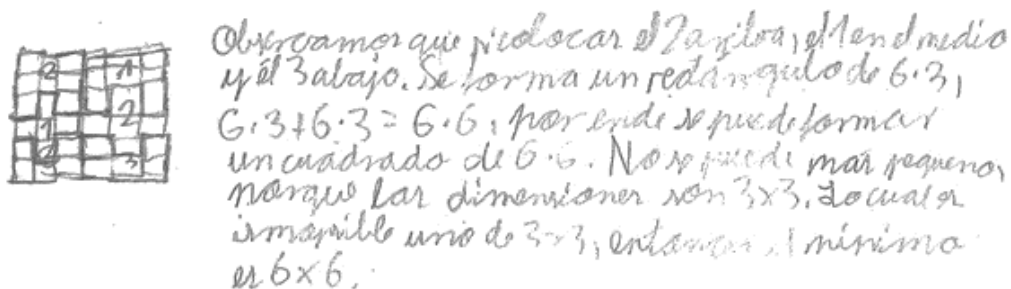 2 1
2
1
2 3
Observamos que si colocar el 2 arriba, el 1 en el medio
y el 3 abajo. Se forma un rectángulo de 6·3,
6·3+6·3=6·6, por ende se puede formar
un cuadrado de 6·6. No se puede mas pequeno,
porque las dimensiones son 3x3. Lo cual es
imposible uno de 3x3, entonces el mínimo
es 6x6.